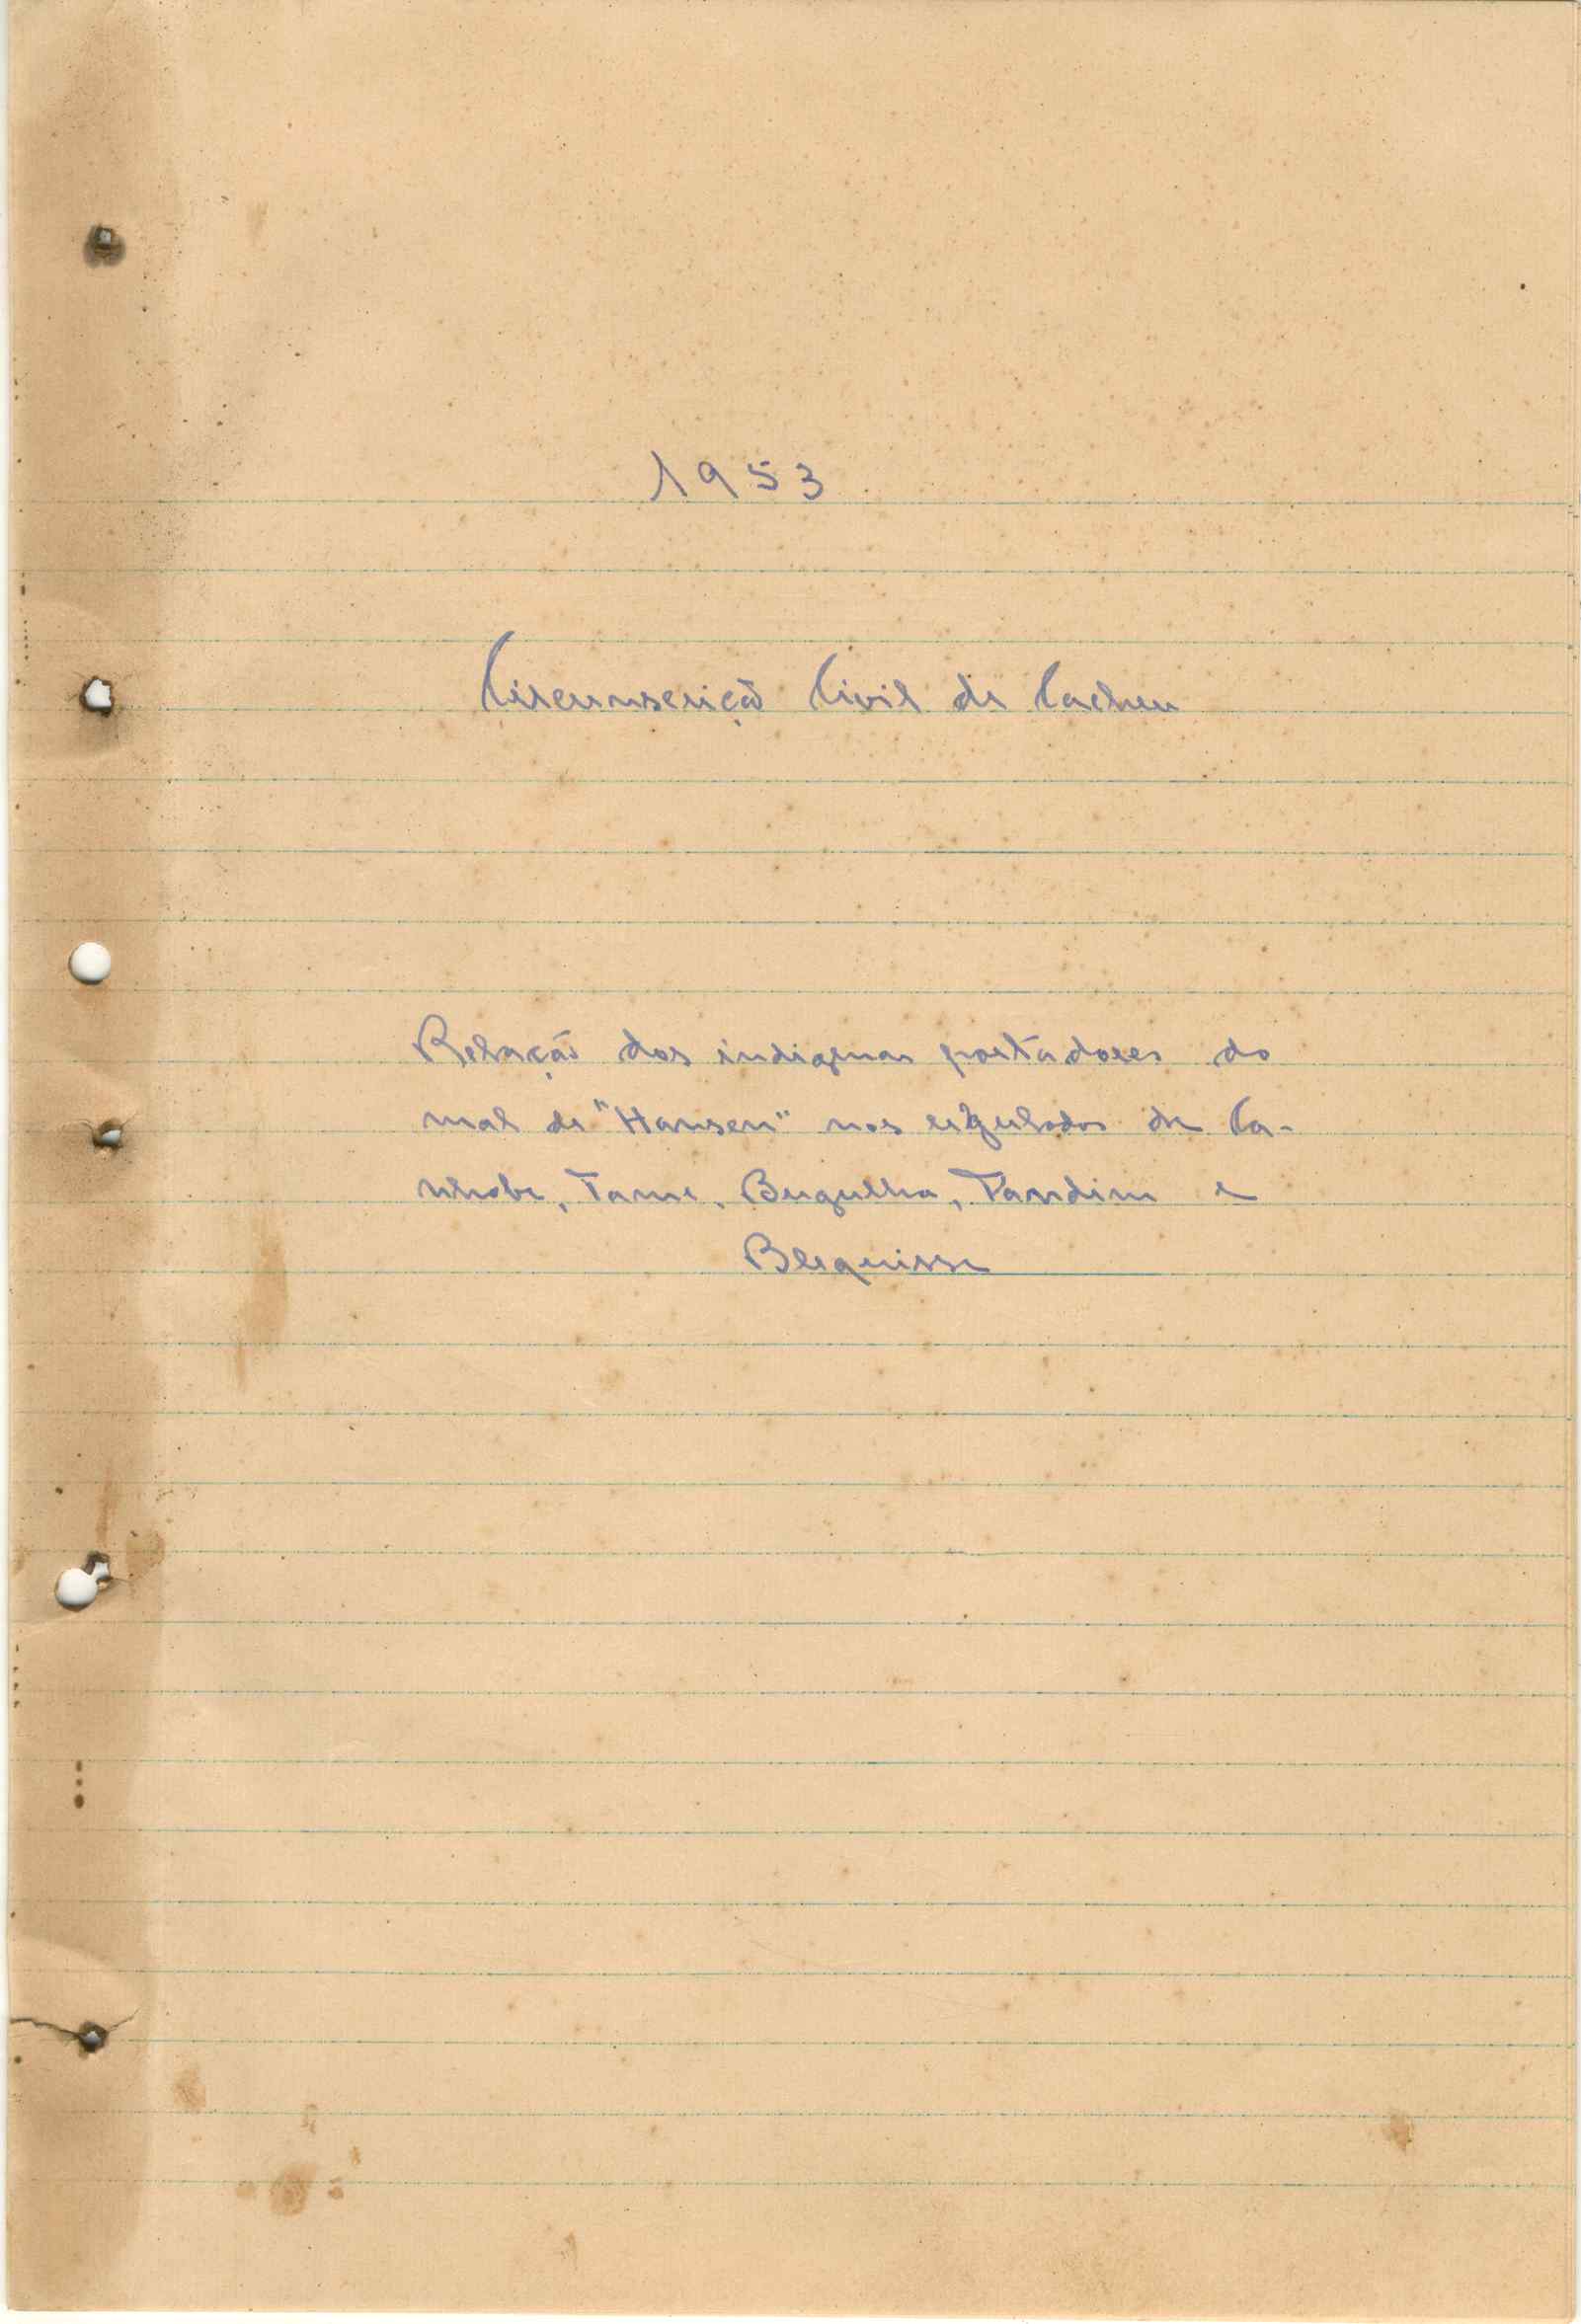 1953
Circunscrição Civil de Cacheu
Relação dos indigenas portadores do
mal de "Hansen" nos regulados de Ca-
nhobe, Tame, Bugulha, Pandim e
Blequisse